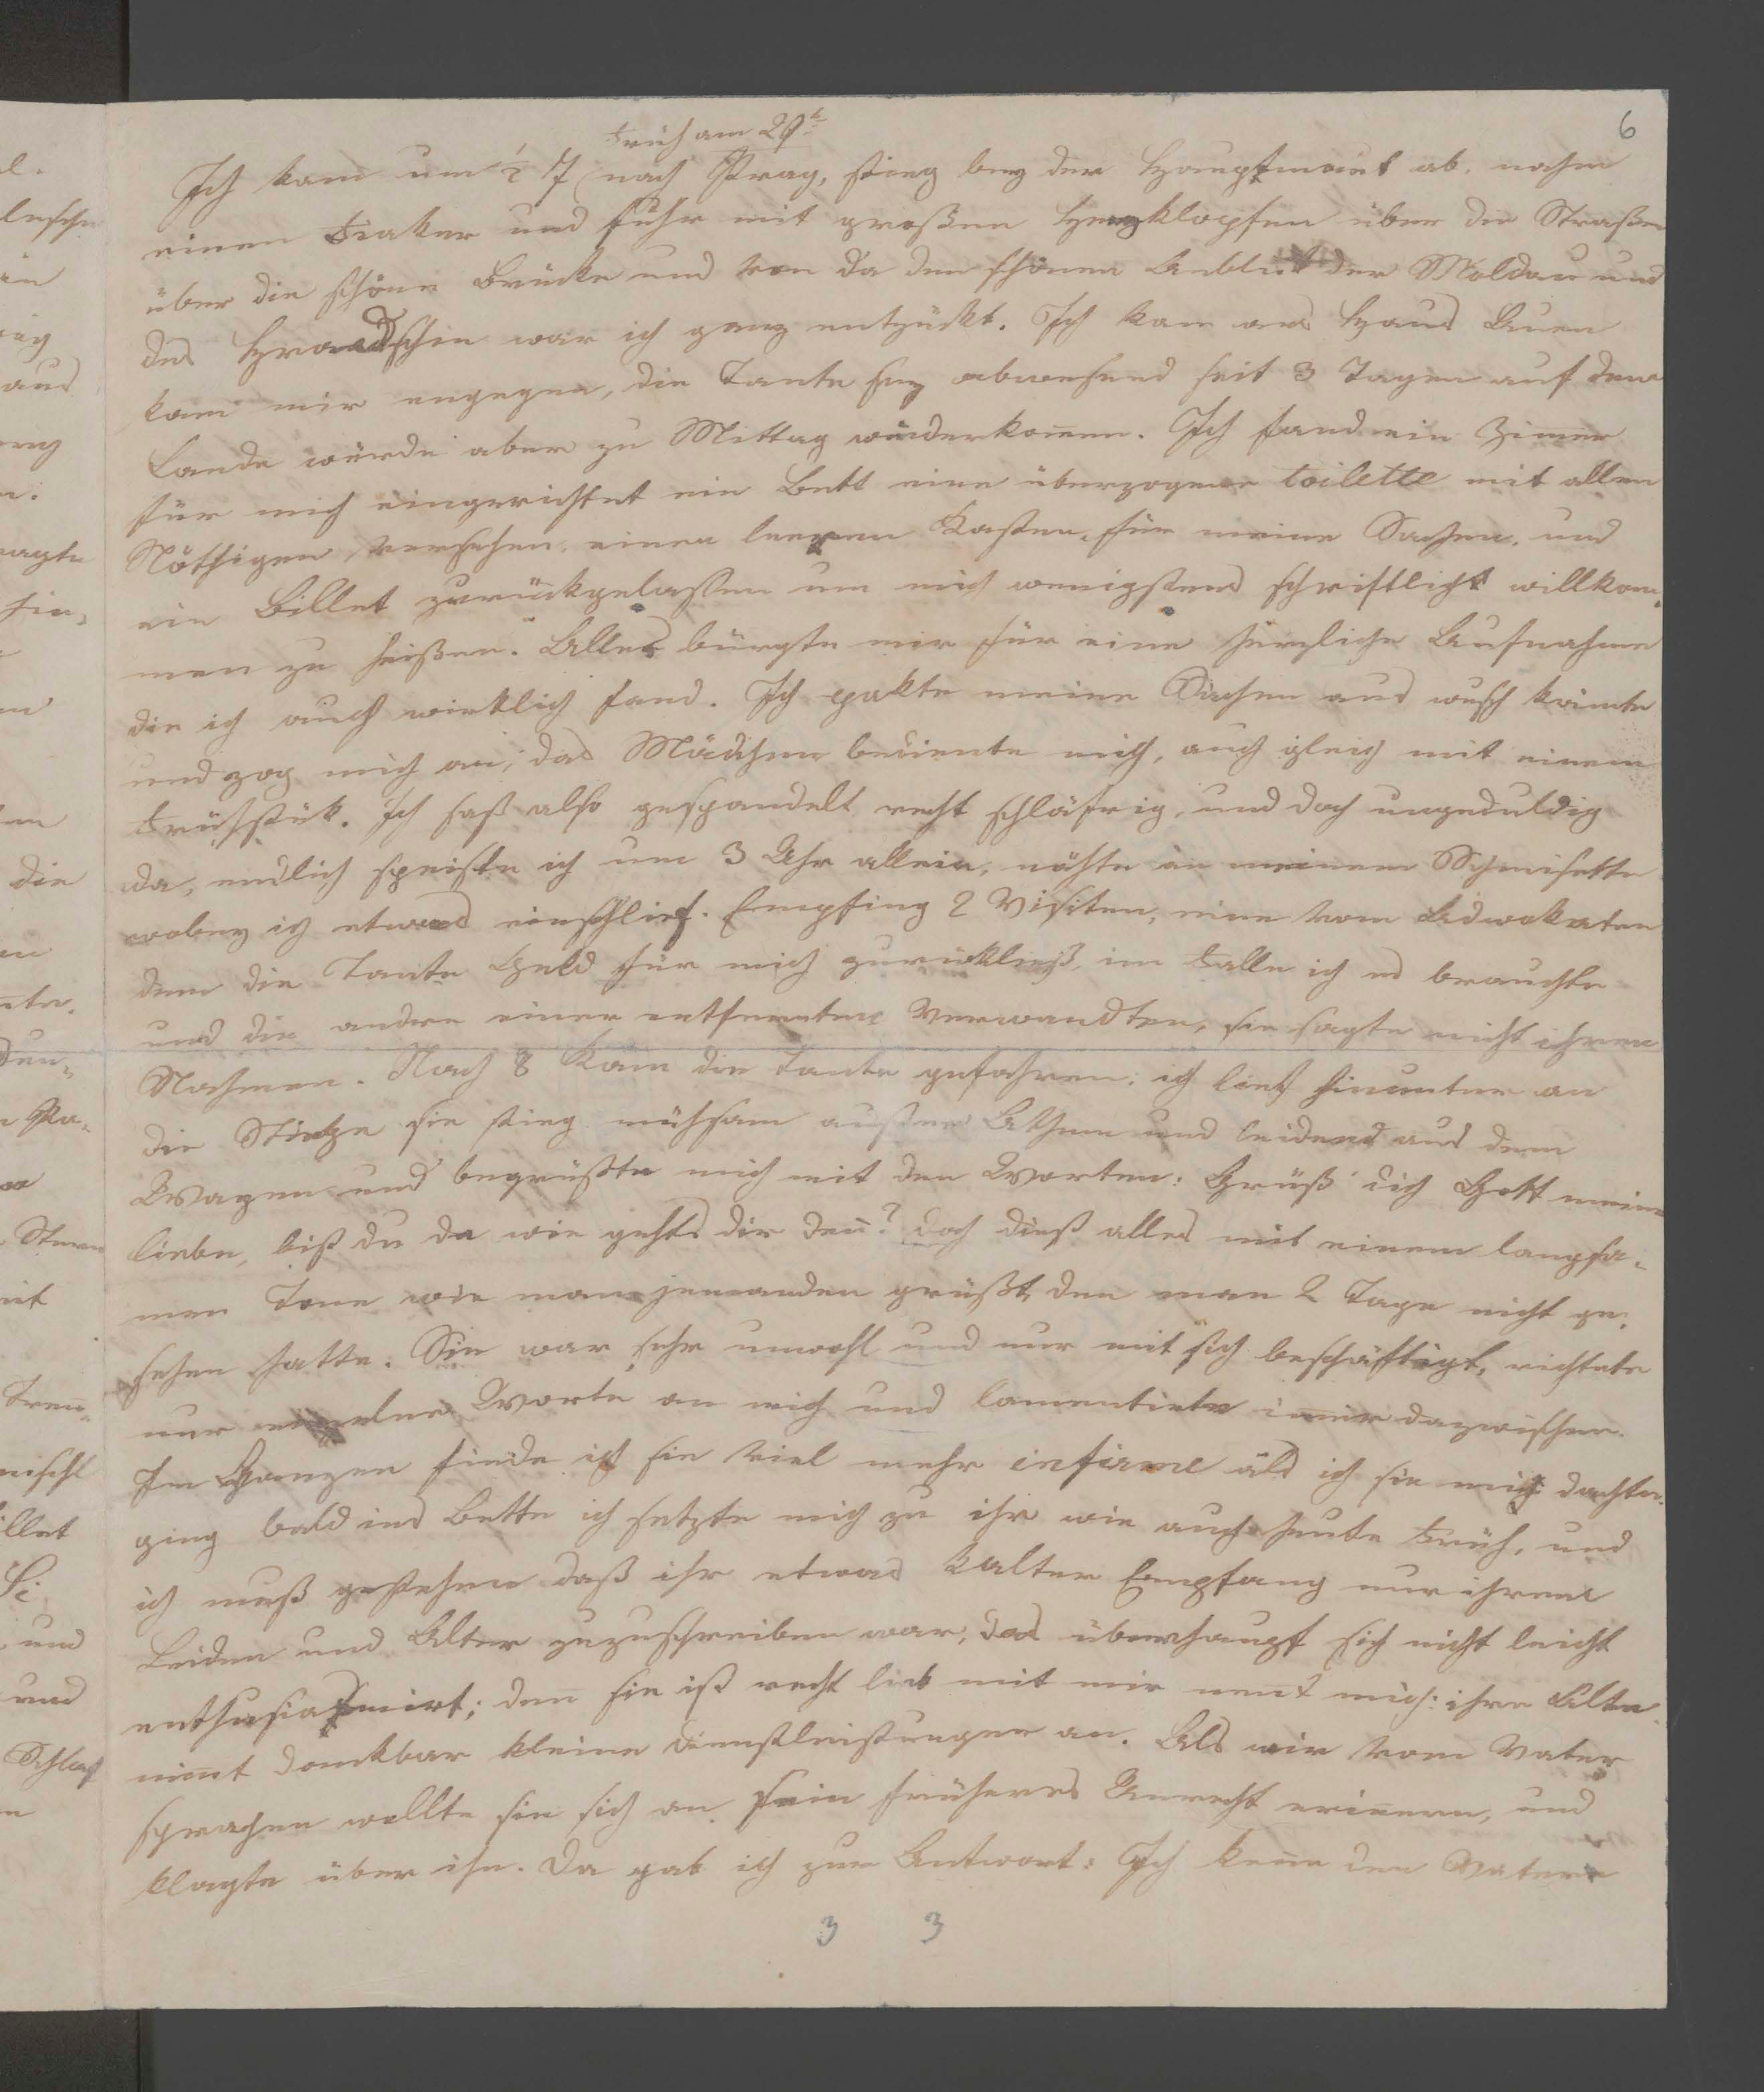 6
früh am 29t
Ich kam um ½ 7 nach Prag, stieg bey der Hauptmaut ab, nahm
einen Fiaker und fuhr mit großen Herzklopfen über die Straßen
über die schöne Brücke und von da den schönen Anblick der Moldau und
des Hradschin war ich ganz entzückt. Ich kam ans Haus
kam mir engegen, die Tante sey abwesend seit 3 Tagen auf dem
Lande würde aber zu Mittag wiederkommen. Ich fand ein Zimmer
für mich eingerichtet ein Bett eine überzogene toilette mit allem
Nöthigen versehen, einen leeren Kasten für meine Sachen, und
ein Billet zurückgelassen um mich wenigstens schriftlich willkom-
men zu heißen. Alles bürgte mir für eine herzliche Aufnahme
die ich auch wirklich fand. Ich pakte meine Sachen aus wusch kämte
und zog mich an, das Mädchen bediente mich, auch gleich mit einem
Frühstük. Ich saß also recht schläfrig, und doch ungeduldig
da, endlich speiste ich um 3 Uhr allein, nähte an meinem Schemisette
wobey ich etwas einschlief. Empfing 2 Visiten, eine vom Advokaten
dem die Tante Geld für mich zurückließ, im Falle ich es brauchte
und die andre einer entfernten Verwandten, sie sagte nicht ihren
Nahmen. Nach 8 kam die Tante gefahren; ich lief hinunter an
die Stiege sie stieg mühsam außer Athem und leidend aus dem
Wagen und begrüßte mich mit den Worten: Grüß dich Gott meine
liebe, bist du da wie gehts dir den̄? doch dieß alles mit einem langsa-
men Tone wie man jemanden grüßt, den man 2 Tage nicht ge-
sehen hatte. Sie war sehr unwohl und nur mit sich beschäftigt, richtete
nur einzelne Worte an mich und lamentirte im̄er dazwischen.
Im Ganzen finde ich sie viel mehr infirme als ich sie mich dachte.
ging bald ins Bette ich setzte mich zu ihr wie auch heute Früh, und
ich muß gestehen daß ihr etwas kalter Empfang nur ihrem
Leiden und Alter zuzuschreiben war, das überhaupt sich nicht leicht
enthusiasmirt; den̄ sie ist recht lieb mit mir nent mich: ihre Alte
nim̄t dankbar kleine Dienstleistungen an. Als wir vom Vater
sprachen wollte sie sich an sein früheres Unrecht erin̄ern, und
klagte über ihn. Da gab ich zur Antwort: Ich kenne den Vater
3 3